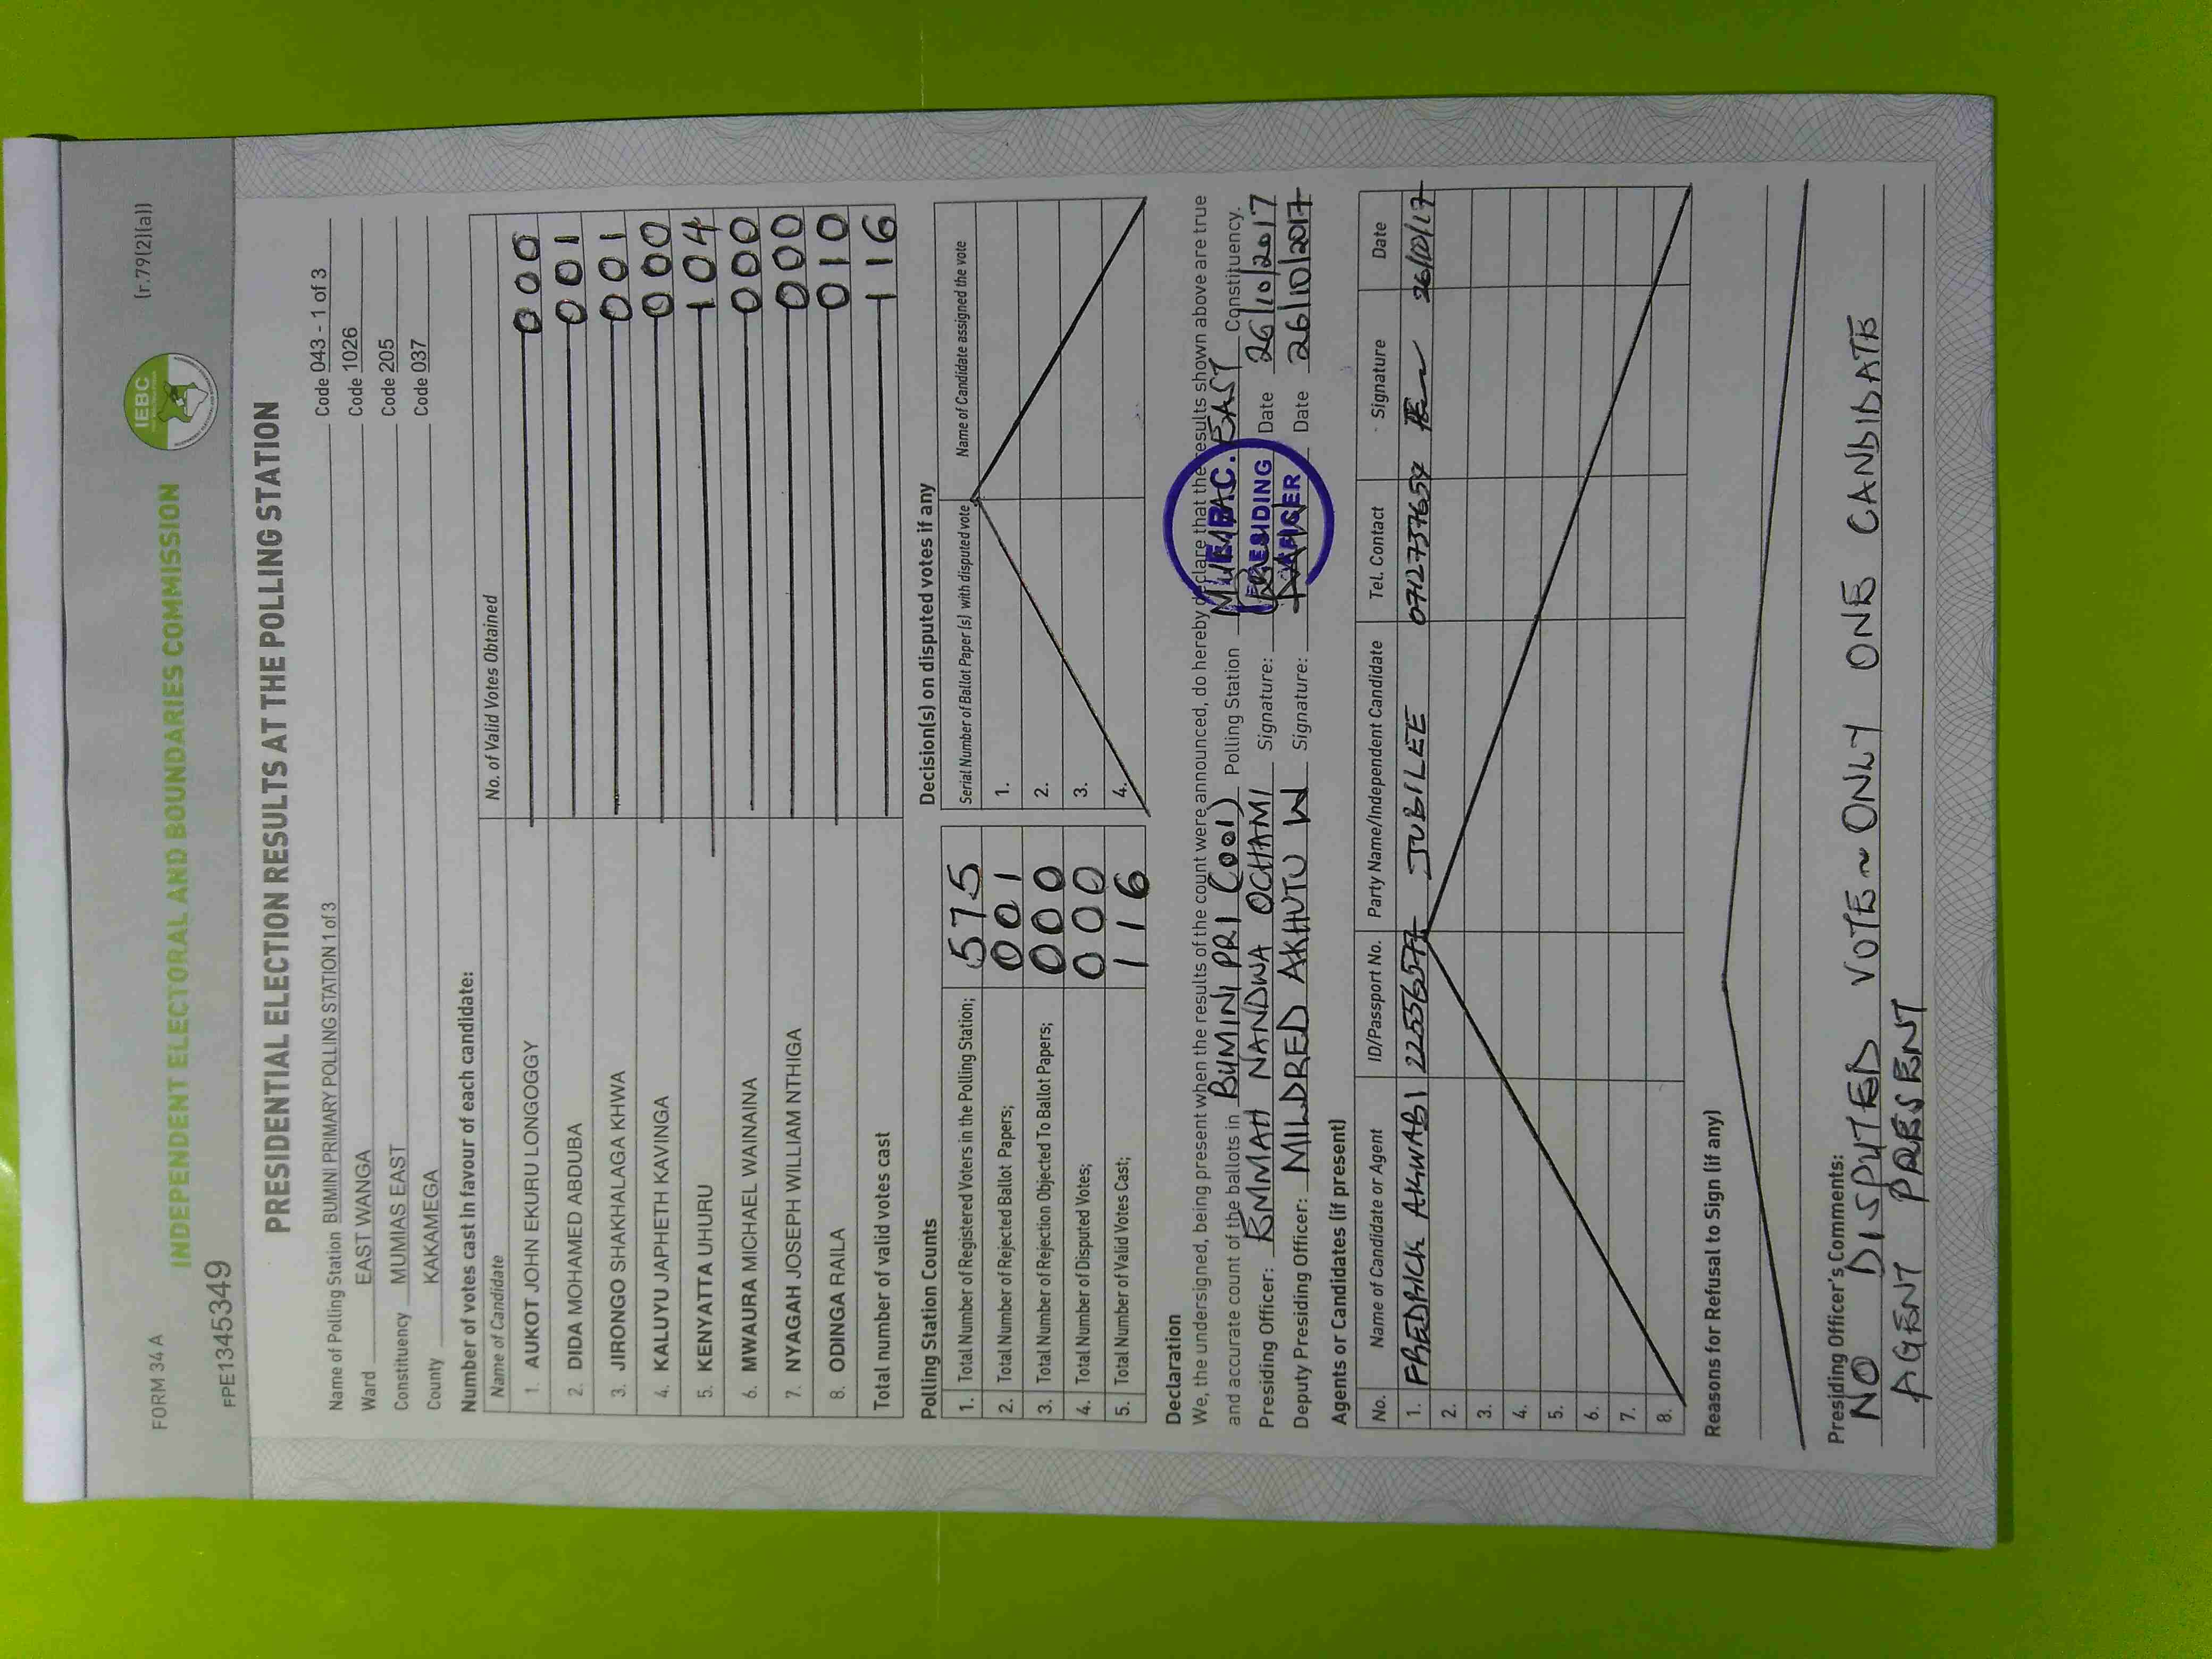 FORM 34 A
(r.79(2)(a))
INDEPENDENT ELECTORAL AND BOUNDARIES COMMISSION
IEBC
FPE1345349
PRESIDENTIAL ELECTION RESULTS AT THE POLLING STATION
Name of Polling Station BUMINI PRIMARY POLLING STATION 1 of 3 Code 043 - 1 of 3
Ward EAST WANGA Code 1026
Constituency MUMIAS EAST Code 205
County KAKAMEGA Code 037
Number of votes cast in favour of each candidate:
Name of Candidate No. of Valid Votes Obtained
1. AUKOT JOHN EKURU LONGOGGY 000
2. DIDA MOHAMED ABDUBA 001
3. JIRONGO SHAKHALAGA KHWA 001
4. KALUYU JAPHETH KAVINGA 000
5. KENYATTA UHURU 104
6. MWAURA MICHAEL WAINAINA 000
7. NYAGAH JOSEPH WILLIAM NTHIGA 000
8. ODINGA RAILA 010
Total number of valid votes cast 116
Polling Station Counts
1. Total Number of Registered Voters in the Polling Station; 575
2. Total Number of Rejected Ballot Papers; 001
3. Total Number of Rejection Objected To Ballot Papers; 000
4. Total Number of Disputed Votes; 000
5. Total Number of Valid Votes Cast; 116
Decision(s) on disputed votes if any
Serial Number of Ballot Paper (s) with disputed vote Name of Candidate assigned the vote
1.
2.
3.
4.
Declaration
We, the undersigned, being present when the results of the count were announced, do hereby declare that the results shown above are true
and accurate count of the ballots in BUMINI PRI (001) Polling Station MUMIAS EAST Constituency.
Presiding Officer: EMMAH NANDWA OCHAMI Signature: Date 26/10/2017
Deputy Presiding Officer: MILDRED AKHUTU W Signature: Date 26/10/2017
IEBC.
PRESIDING
OFFICER
Agents or Candidates (if present)
No. Name of Candidate or Agent ID/Passport No. Party Name/Independent Candidate Tel. Contact Signature Date
1. FREDRICK AKWABI JUBILEE 26/10/17
2.
3.
4.
5.
6.
7.
8.
Reasons for Refusal to Sign (if any)
Presiding Officer's Comments:
NO DISPUTED VOTE ~ ONLY ONE CANDIDATE
AGENT PRESENT